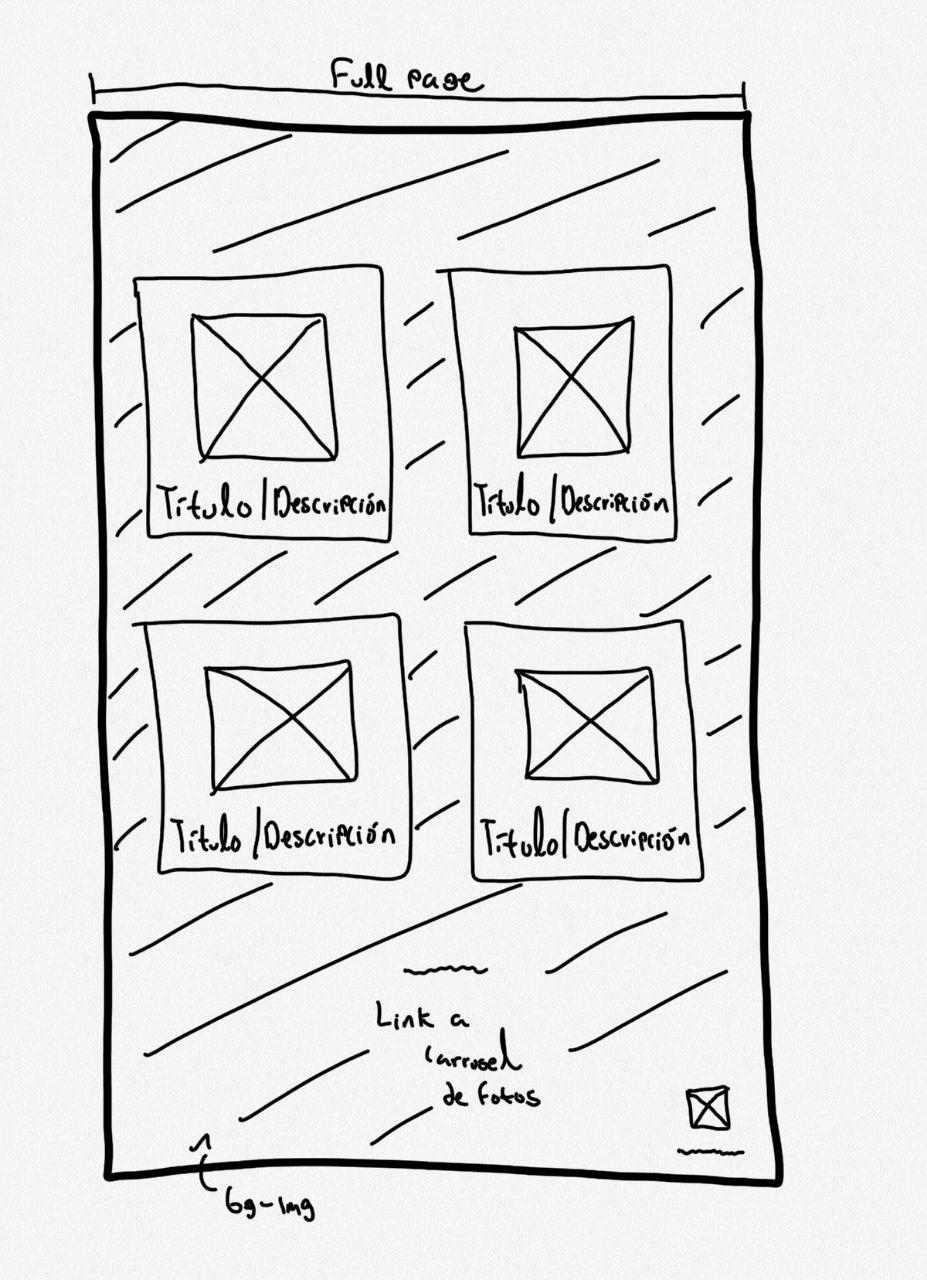 Full page
Título/Descripción
Título/Descripción
Título/Descripción
Título/Descripción
Link a
carrusel
de fotos
bg-img